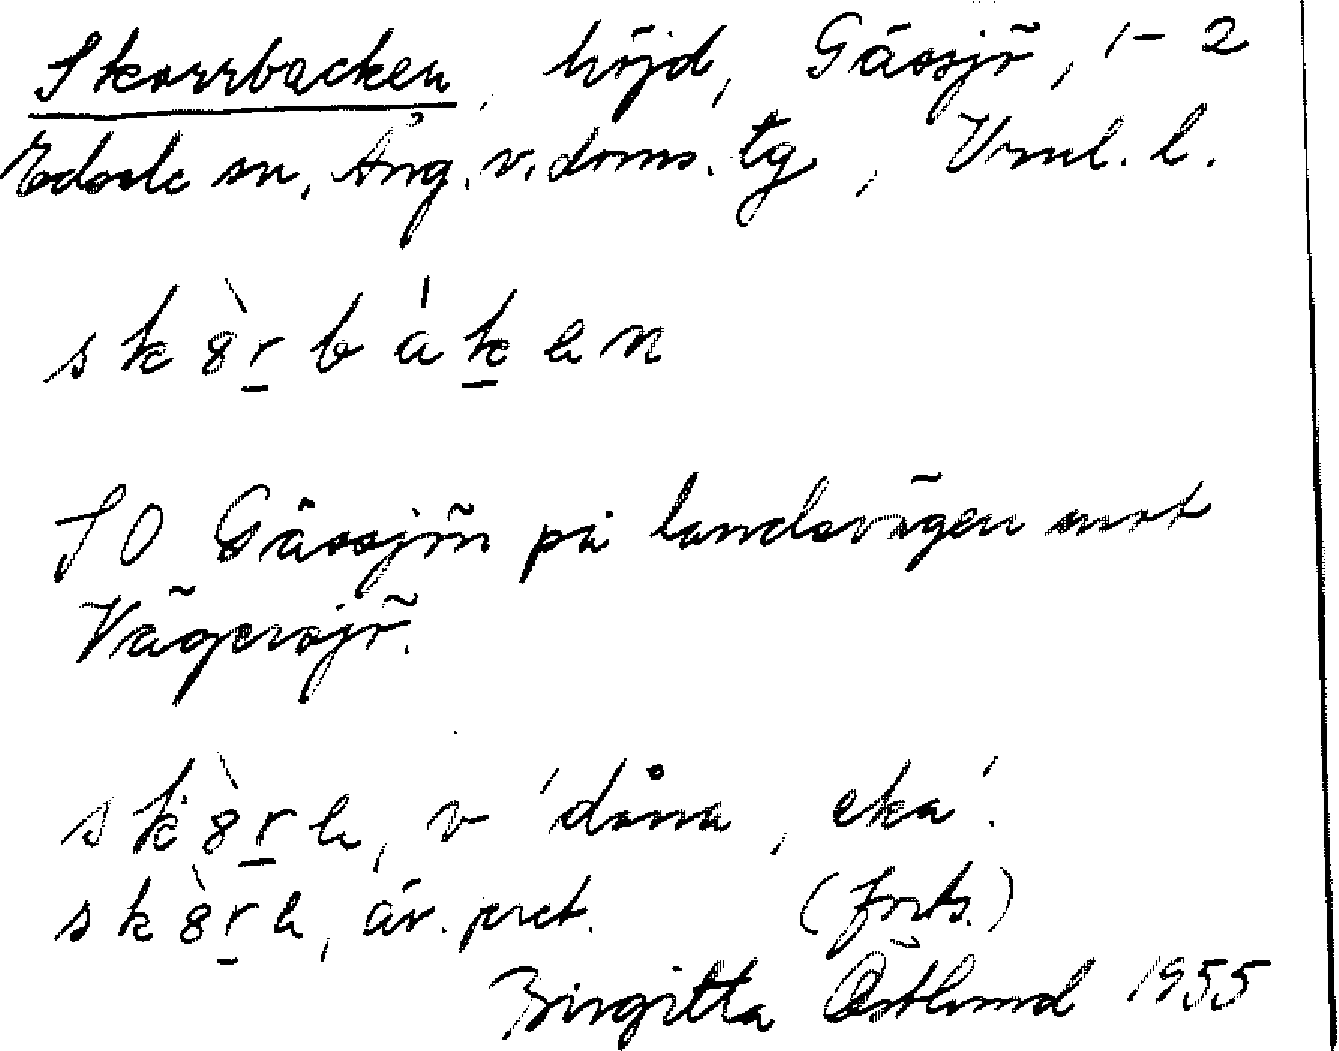 Skorrbacken, höjd, Gässjö, 1-2
Edsele sn, Ång. v. doms. tg, Vrnl. l.
sk8̀r̲bák̲en
SO Gässjön på landsvägen mot
Vägersjö.
sk8̀r̲e, v 'dåna, eka'.
sk8̀r̲e, äv. pret. (forts.)
Birgitta Östlund 1955